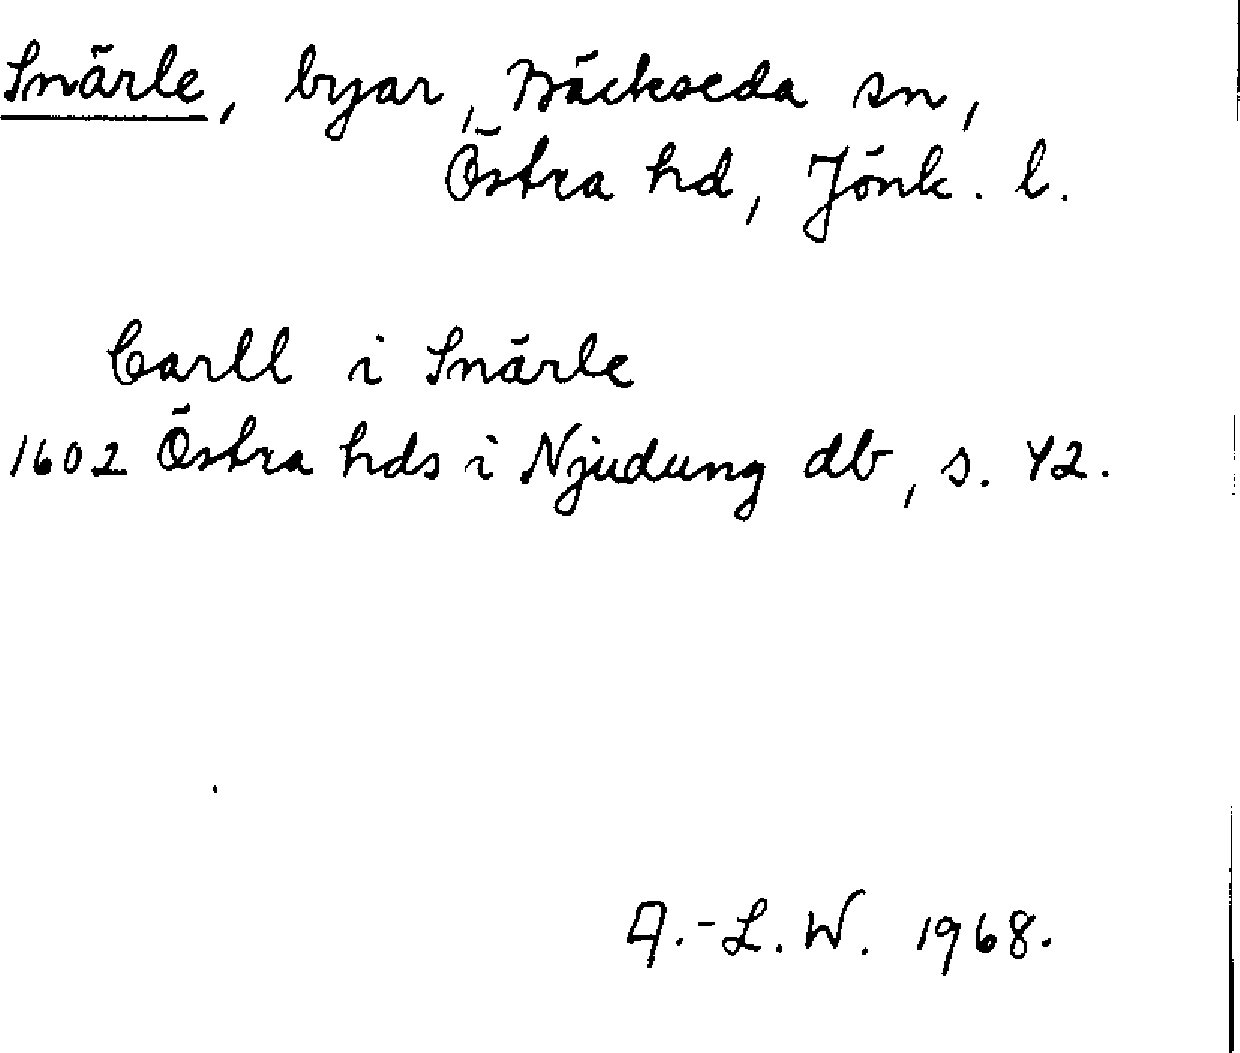 Snärle, byar, Bäckseda sn,
Östra hd, Jönk. l.
Carll i Snärle
1602 Östra hds i Njudung db, s. 42.
A.-L. W. 1968.